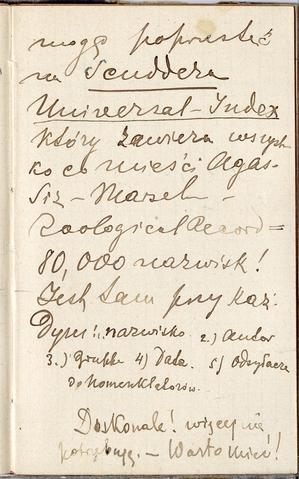 mogę poprzestać
na Scuddera
Universal-Index
który zawiera wszyst-
ko co mieści Agas-
siz - Marsch -
Zoological Record =
80,000 nazwisk!
Jest tam przy każ-
dym: nazwisko 2.) Autor
3.) Gruppe 4) Data 5) Odsyłacz
do Nomenklatorów.
Doskonałe! więcej nie
potrzebuję. - Warto mieć!